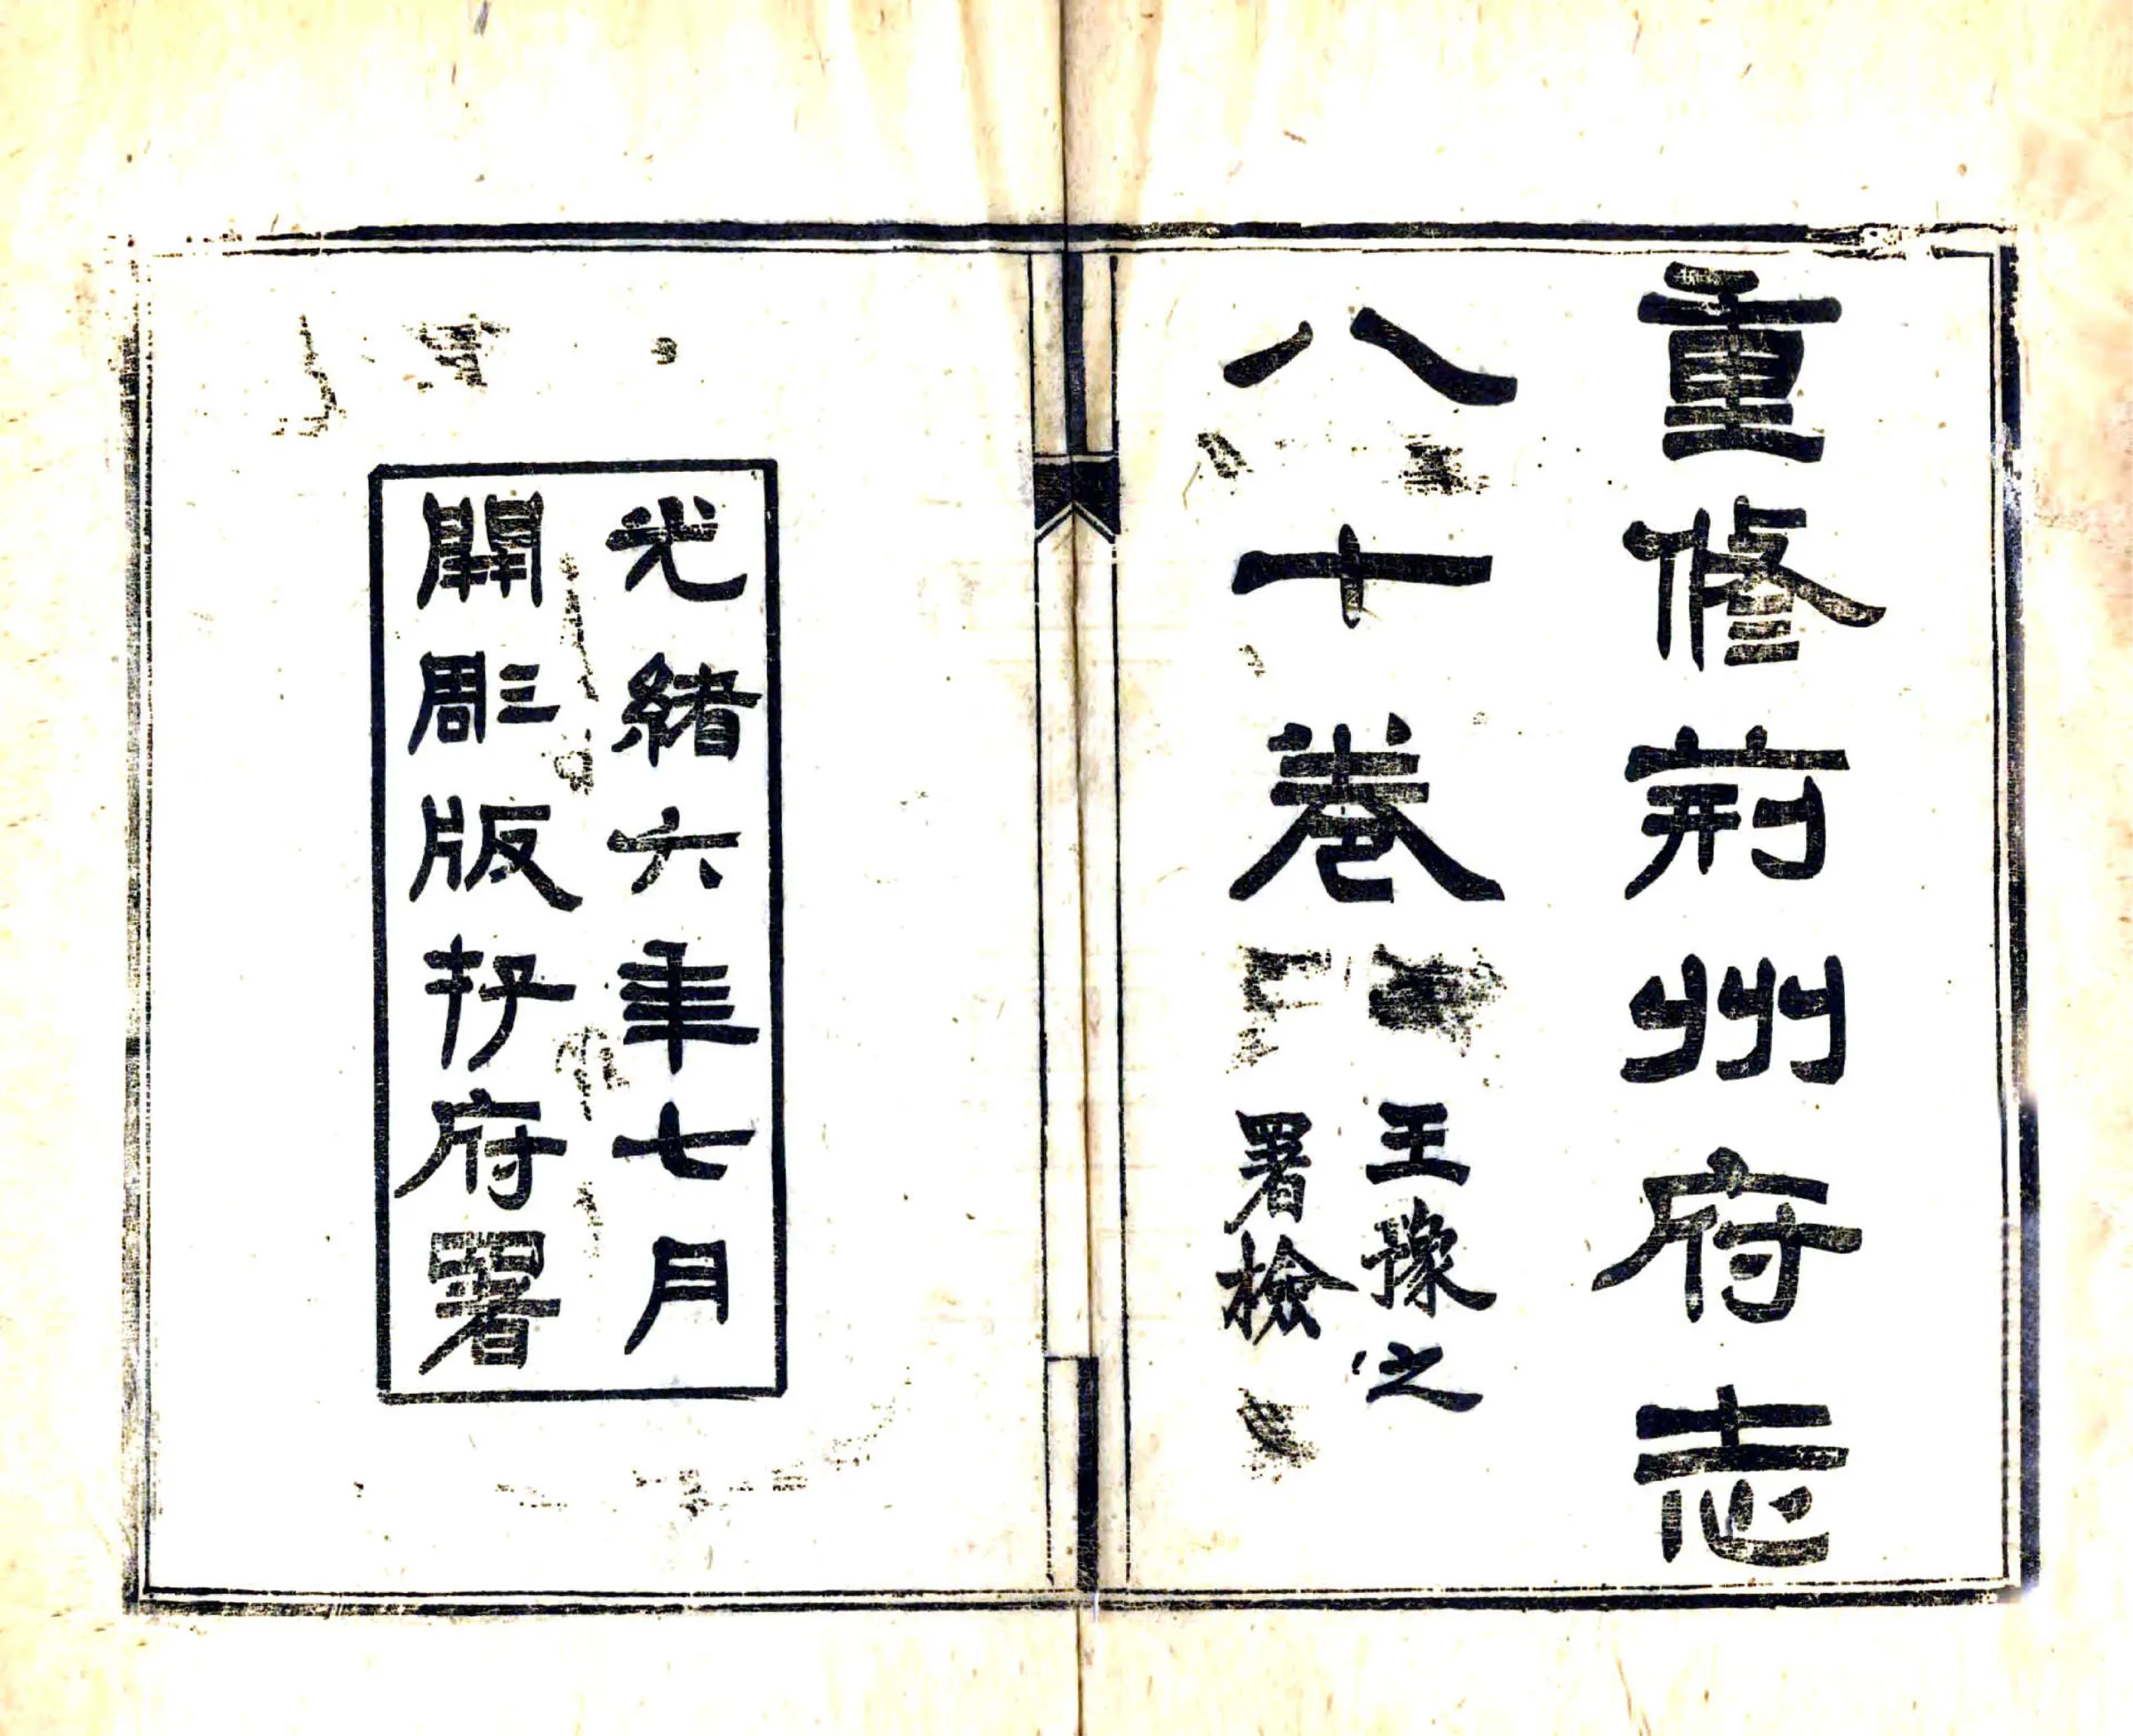 重修荊州府志
八十卷
王豫之
署檢
光緒六年七月
開彫版存府署